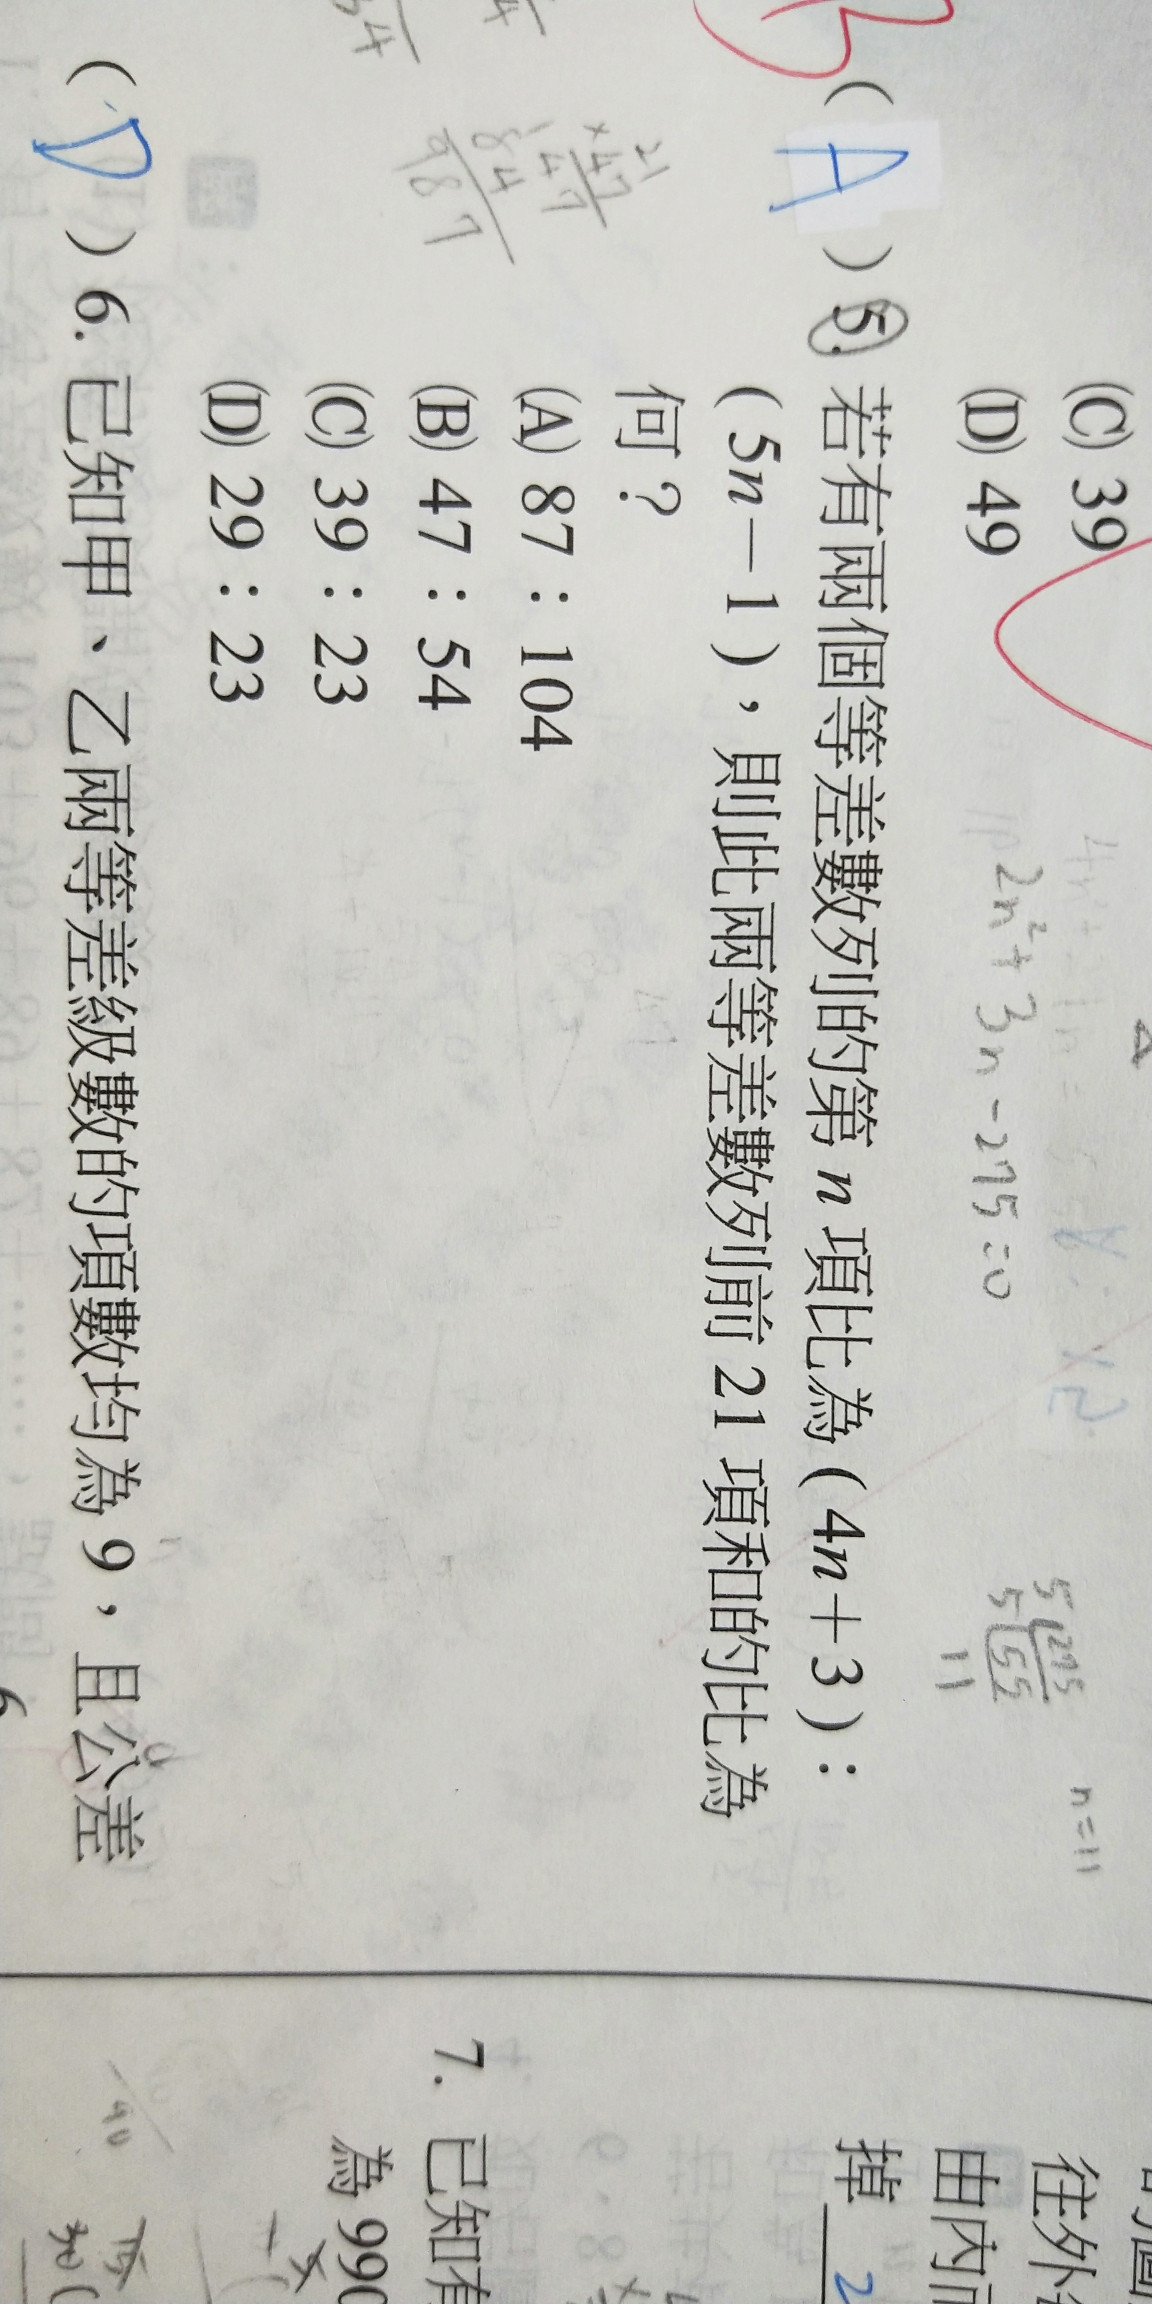 (C) 39
(D) 49
2n²+3n-275=0
5 275
5 55
11
n=11
B
( A ) 5. 若有兩個等差數列的第 n 項比為 ( 4n+3 ) :
( 5n-1 ),則此兩等差數列前 21 項和的比為
何?
(A) 87:104
(B) 47:54
(C) 39:23
(D) 29:23
21
×47
147
84
987
( D ) 6. 已知甲、乙兩等差級數的項數均為 9,且公差
往外
由內
掉 2
7. 已知有
為 990